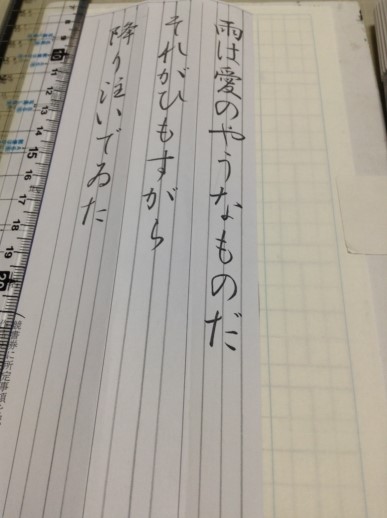 雨は愛のやうなものだ
それがひもすがら
降り注いでゐた
7
8
9
10
11
12
13
14
15
16
17
18
19
20